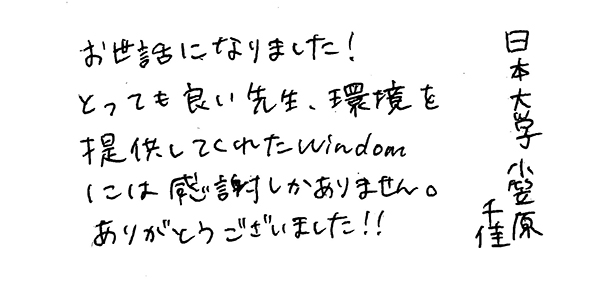 お世話になりました!
とっても良い先生、環境を
提供してくれたWindom
には感謝しかありません。
ありがとうございました!!
日本大学 小笠原
千佳